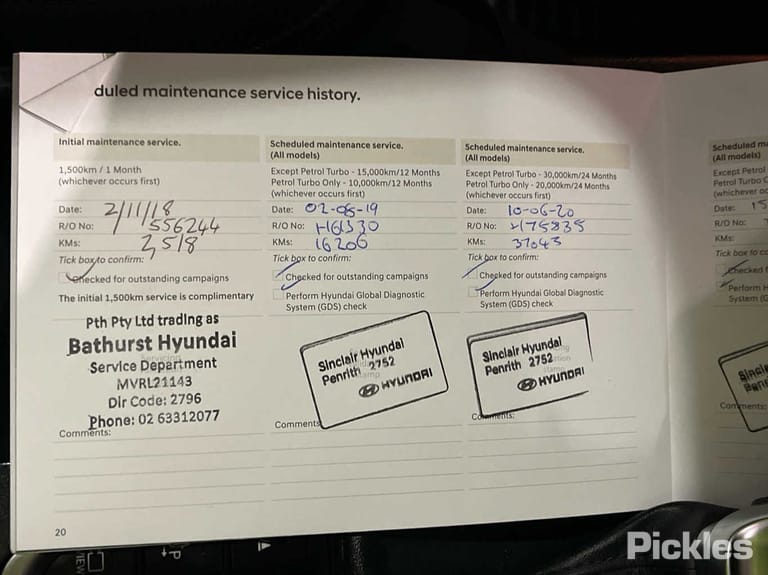 duled maintenance service history.
Initial maintenance service.
1,500km / 1 Month
(whichever occurs first)
Date: 2/11/18
R/O No: 556244
KMs: 2,518
Tick box to confirm:
Checked for outstanding campaigns
The initial 1,500km service is complimentary
Pth Pty Ltd trading as
Bathurst Hyundai
Service Department
MVRL21143
Dlr Code: 2796
Phone: 02 63312077
Comments:
Scheduled maintenance service.
(All models)
Except Petrol Turbo - 15,000km/12 Months
Petrol Turbo Only - 10,000km/12 Months
(whichever occurs first)
Date: 02-08-19
R/O No: H161330
KMs: 16206
Tick box to confirm:
Checked for outstanding campaigns
Perform Hyundai Global Diagnostic
System (GDS) check
Sinclair Hyundai
Penrith 2752
HYUNDAI
Comments
Scheduled maintenance service.
(All models)
Except Petrol Turbo - 30,000km/24 Months
Petrol Turbo Only - 20,000km/24 Months
(whichever occurs first)
Date: 10-06-20
R/O No: H175835
KMs: 37043
Tick box to confirm:
Checked for outstanding campaigns
Perform Hyundai Global Diagnostic
System (GDS) check
Sinclair Hyundai
Penrith 2752
HYUNDAI
Comments:
Scheduled ma
(All models)
Except Petrol
Petrol Turbo O
(whichever oc
Date: 15
R/O No:
KMs:
Tick box to co
Checked f
Perform H
System (G
Sincla
Penri
Comments:
20
VIEW
P
Pickles